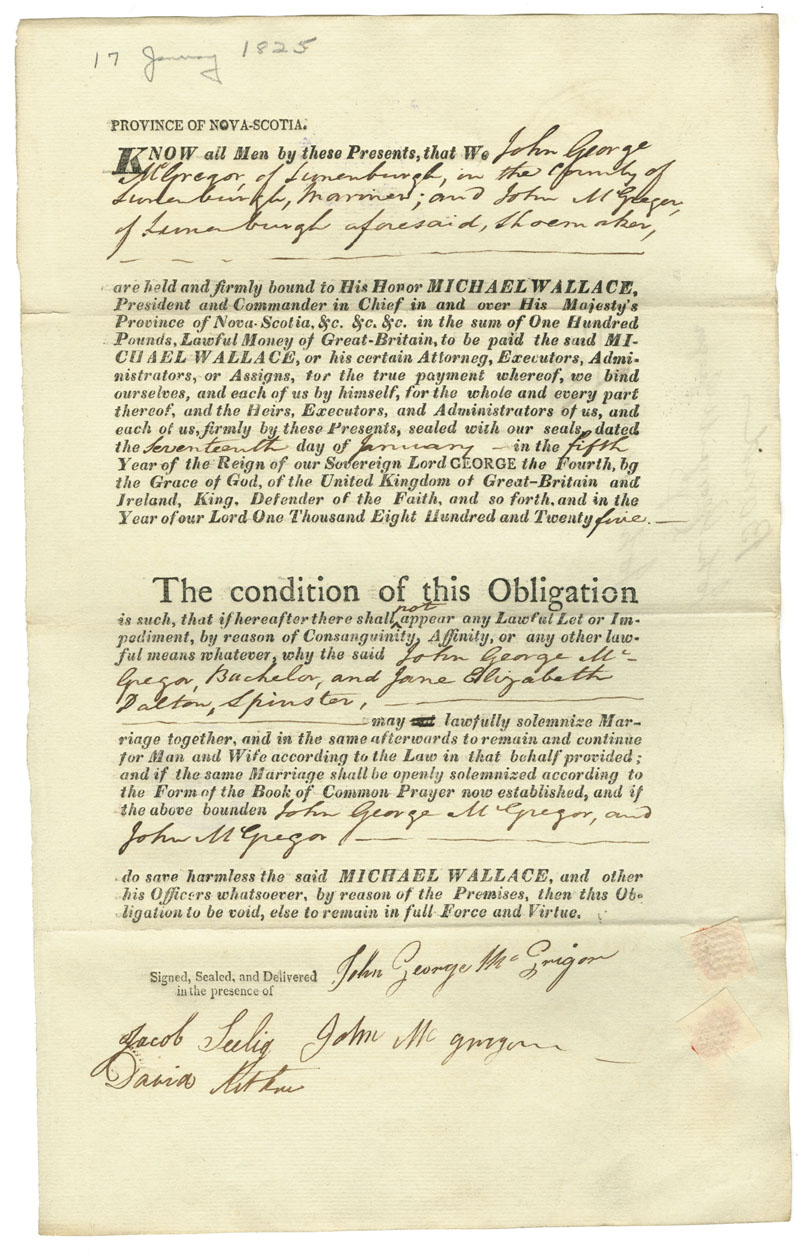 17 January 1825
PROVINCE OF NOVA-SCOTIA.
KNOW all Men by these Presents, that We John George
McGregor, of Lunenburgh, in the County of
Lunenburgh, Mariner; and John McGregor,
of Lunenburgh aforesaid, Shoemaker,
are held and firmly bound to His Honor MICHAEL WALLACE,
President and Commander in Chief in and over His Majesty's
Province of Nova-Scotia, &c. &c. &c. in the sum of One Hundred
Pounds, Lawful Money of Great-Britain, to be paid the said MI-
CHAEL WALLACE, or his certain Attorneg, Executors, Admi-
nistrators, or Assigns, for the true payment whereof, we bind
ourselves, and each of us by himself, for the whole and every part
thereof, and the Heirs, Executors, and Administrators of us, and
each of us, firmly by these Presents, sealed with our seals, dated
the Seventeenth day of January in the fifth
Year of the Reign of our Sovereign Lord GEORGE the Fourth, bg
the Grace of God, of the United Kingdom of Great-Britain and
Ireland, King, Defender of the Faith, and so forth, and in the
Year of our Lord One Thousand Eight Hundred and Twenty five.
The condition of this Obligation
is such, that if hereafter there shall not appear any Lawful Let or Im-
pediment, by reason of Consanguinity, Affinity, or any other law-
ful means whatever, why the said John George Mc-
Gregor, Bachelor, and Jane Elizabeth
Dalton, Spinster,
may lawfully solemnize Mar-
riage together, and in the same afterwards to remain and continue
for Man and Wife according to the Law in that behalf provided;
and if the same Marriage shall be openly solemnized according to
the Form of the Book of Common Prayer now established, and if
the above bounden John George McGregor, and
John McGregor
do save harmless the said MICHAEL WALLACE, and other
his Officers whatsoever, by reason of the Premises, then this Ob-
ligation to be void, else to remain in full Force and Virtue.
Signed, Sealed, and Delivered
in the presence of
John George McGrigor
Jacob Seelig John Mcgregor
David